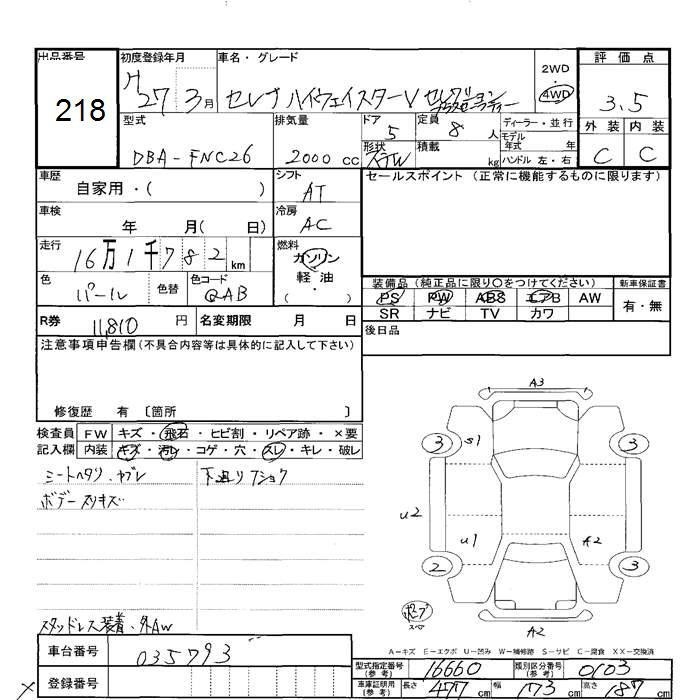 出品番号 218
初度登録年月 H 27年 3月
車名・グレード セレナ ハイウェイスターV セレクション
2WD・4WD
評価点 3.5
外装 内装
C C
型式 DBA-FNC26
排気量 2000 cc
ドア 5
定員 8人
ディーラー・並行
モデル年式 年
形状 STW
積載 kg
ハンドル 左・右
車歴 自家用・( )
シフト AT
セールスポイント (正常に機能するものに限ります)
車検 年 月( 日)
冷房 AC
走行 16万1千782 km
燃料 ガソリン
軽油・( )
色 パール 色替 色コード QAB
装備品(純正品に限り○をつけてください) 新車保証書
PS PW ABS エアB AW 有・無
SR ナビ TV カワ
R券 11,810 円 名変期限 月 日
後日品
注意事項申告欄(不具合内容等は具体的に記入して下さい)
修復歴 有 〔箇所 〕
検査員 FW キズ・飛石・ヒビ割・リペア跡・×要
記入欄 内装 キズ・汚レ・コゲ・穴・スレ・キレ・破レ
シートヘタリ、ヤブレ 下廻りフショク
ボデースリキズ
A3
3 S1 3
U2 U1 A2
2 3
A2
スタッドレス装着、外AW
A-キズ E-エクボ U-凹み W-補修跡 S-サビ C-腐食 XX-交換済
車台番号 035793
型式指定番号(参考) 16660 類別区分番号(参考) 0103
登録番号
×
車庫証明用(参考) 長さ 477cm 幅 173cm 高さ 187cm